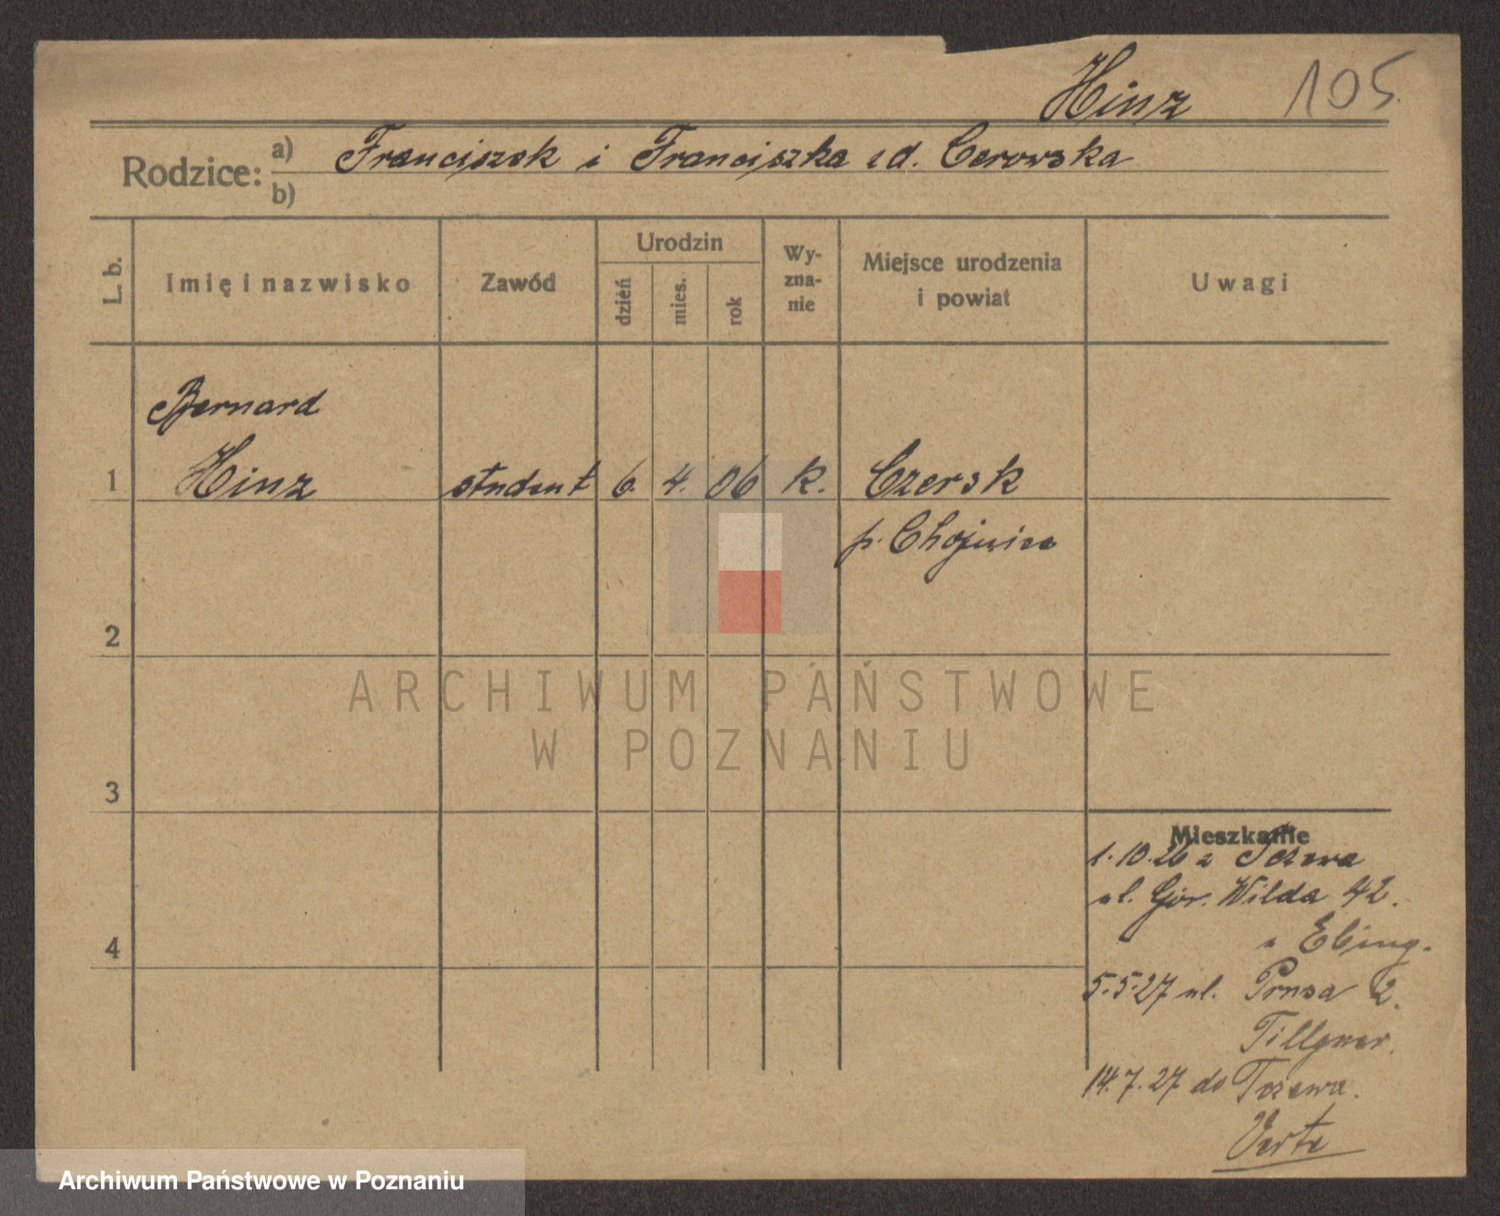 Hinz 105
Rodzice: a) Franciszek i Franciszka zd. Cerowska
b)
L. b. Imię i nazwisko Zawód Urodzin dzień mies. rok Wy-zna-nie Miejsce urodzenia i powiat Uwagi
Bernard
1 Hinz student 6. 4. 06 k. Czersk
p. Chojnice
2
3
4
Mieszkanie
1.10.26 z Tczewa
ul. Gór. Wilda 42.
u Ebing.
5.5.27 ul. Prusa 2.
Tillgner.
14.7.27 do Tczewa.
Verte
ARCHIWUM PAŃSTWOWE
W POZNANIU
Archiwum Państwowe w Poznaniu